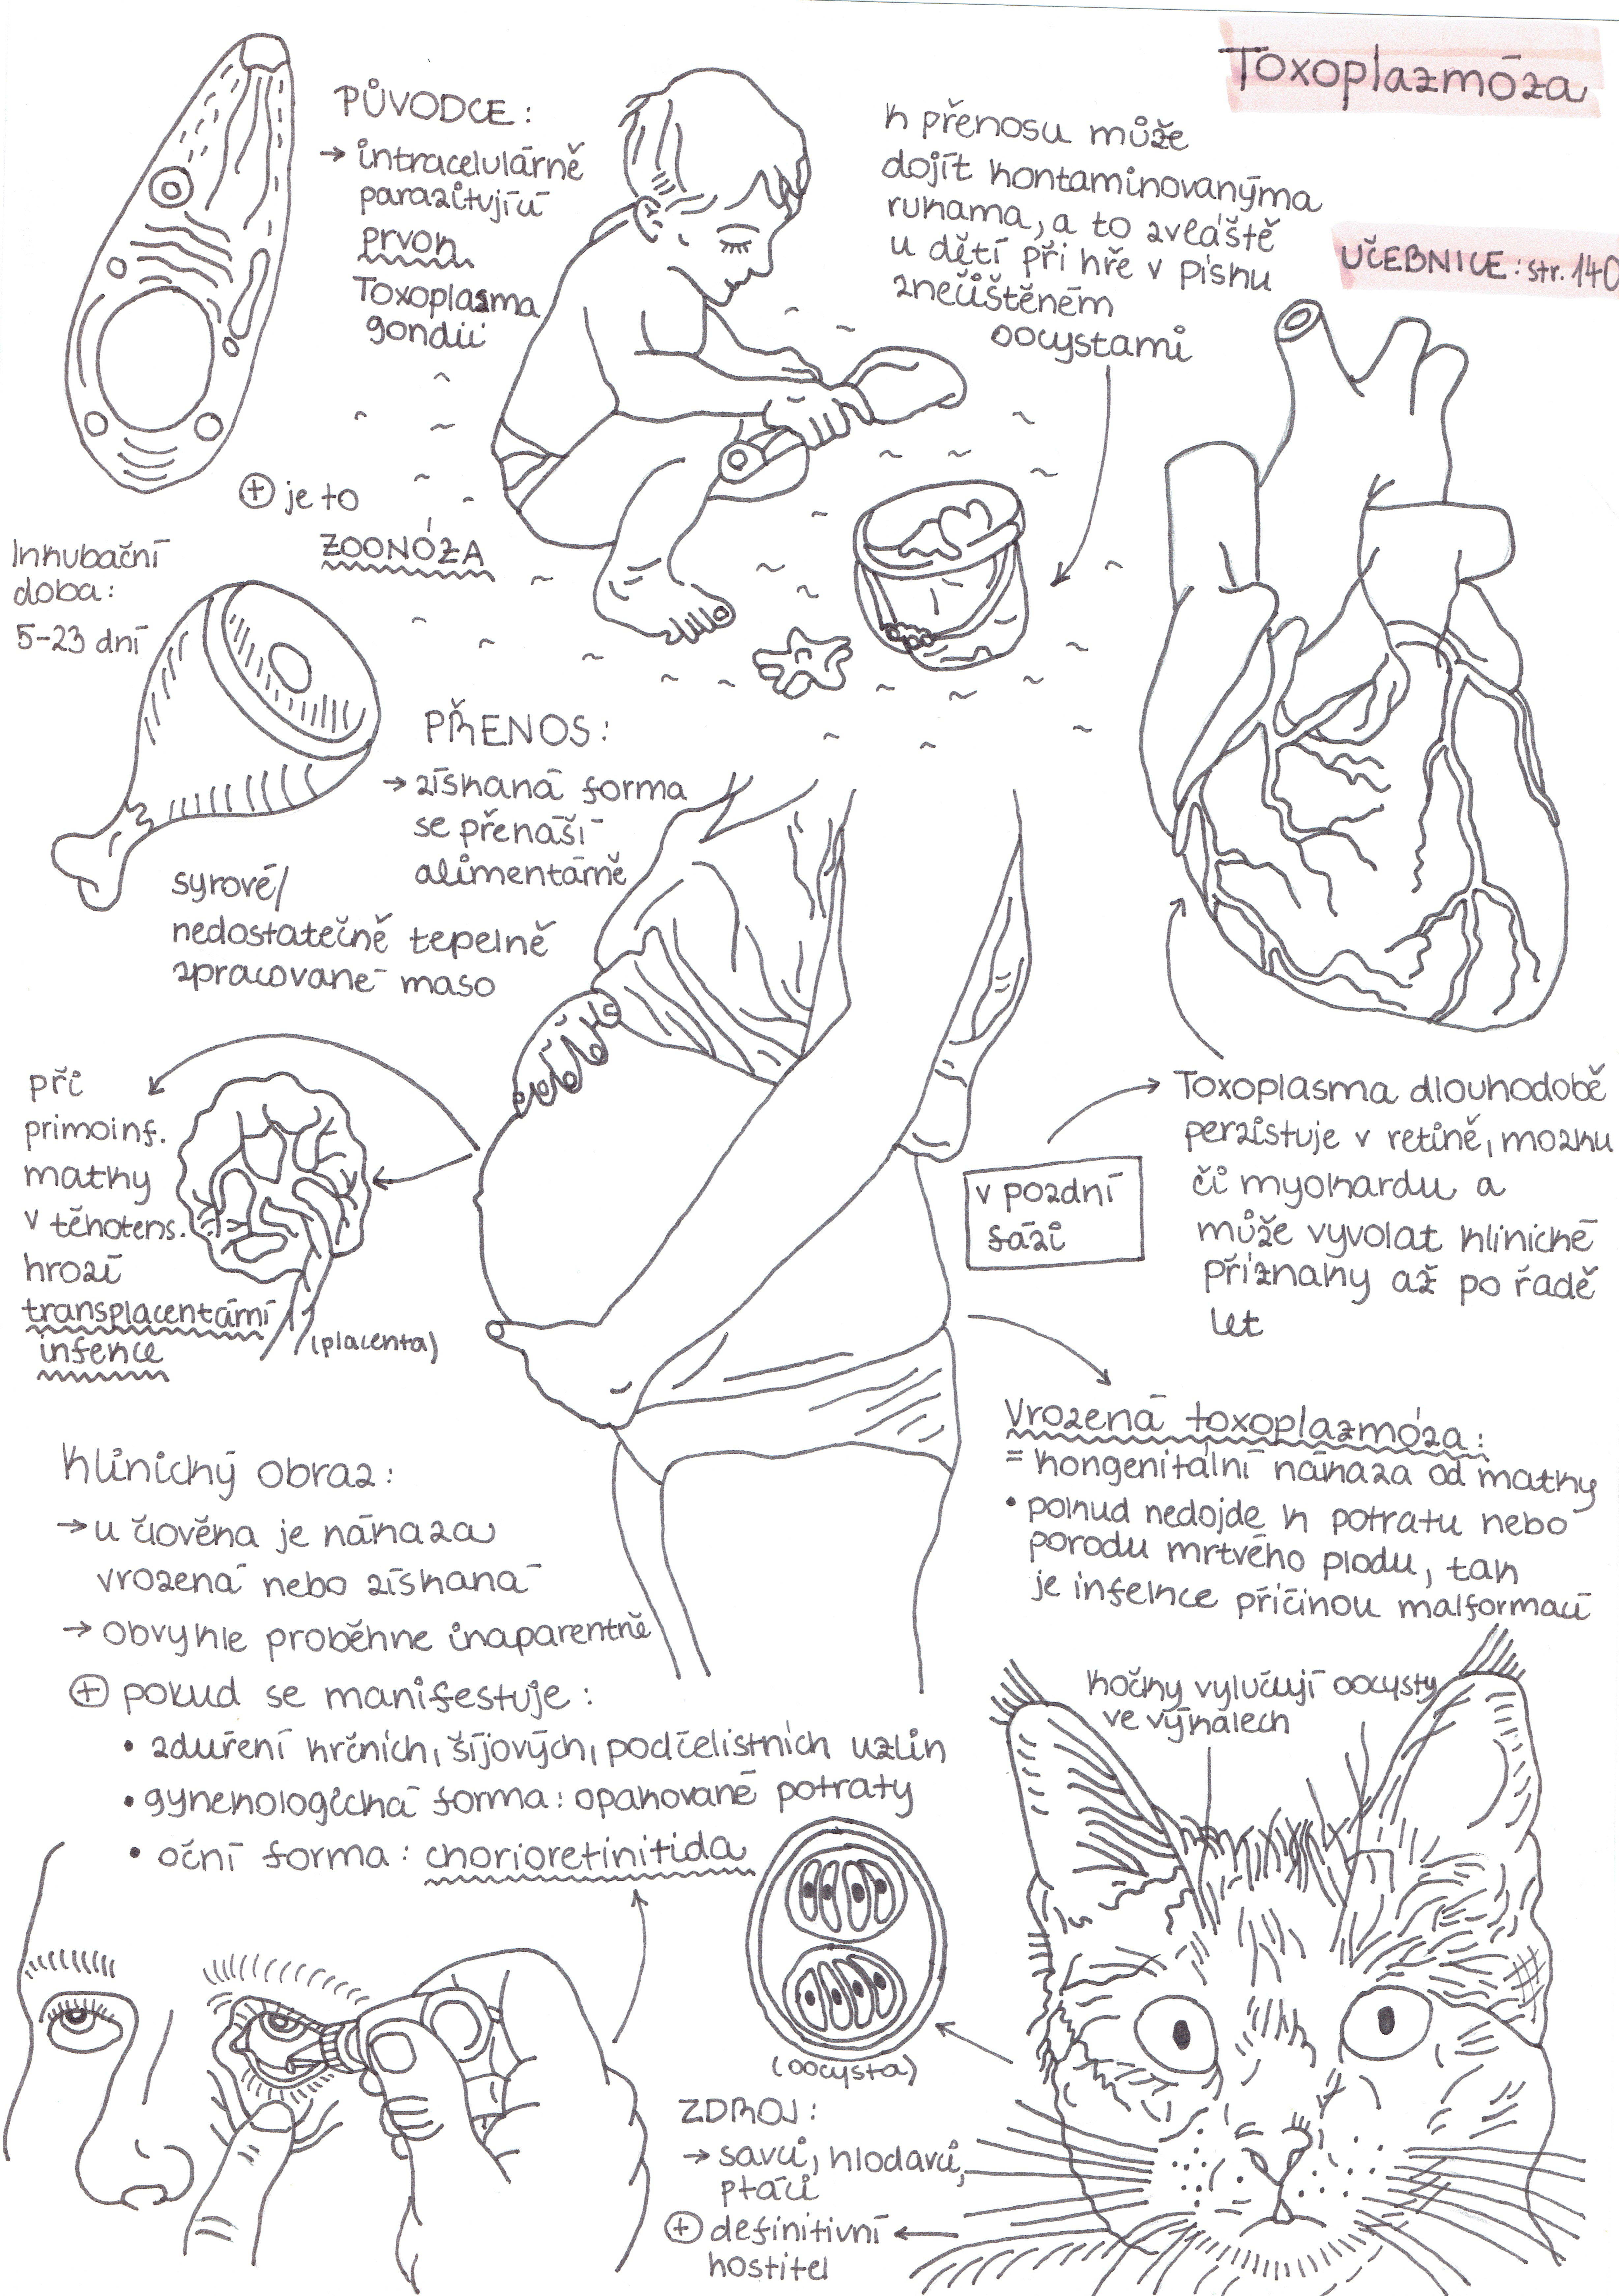 Toxoplazmóza
UČEBNICE: str. 140
PŮVODCE:
→ intracelulárně
parazitující
prvok
Toxoplasma
gondii
⊕ je to
ZOONÓZA
k přenosu může
dojít kontaminovanýma
rukama, a to zvláště
u dětí při hře v písku
znečištěném
oocystami
Inkubační
doba:
5-23 dní
PŘENOS:
→ získaná forma
se přenáší
alimentárně
syrové/
nedostatečně tepelně
zpracované maso
při
primoinf.
matky
v těhotens.
hrozí
transplacentární
infekce
(placenta)
v pozdní
fázi
Toxoplasma dlouhodobě
perzistuje v retině, mozku
či myokardu a
může vyvolat klinické
příznaky až po řadě
let
Vrozená toxoplazmóza:
= kongenitální nákaza od matky
• pokud nedojde k potratu nebo
porodu mrtvého plodu, tak
je infekce příčinou malformací
Klinický obraz:
→ u člověka je nákaza
vrozená nebo získaná
→ Obvykle proběhne inaparentně
⊕ pokud se manifestuje:
• zduření krčních, šíjových, podčelistních uzlin
• gynekologická forma: opakované potraty
• oční forma: chorioretinitida
kočky vylučují oocysty
ve výkalech
(oocysta)
ZDROJ:
→ savci, hlodavci,
ptáci
⊕ definitivní
hostitel